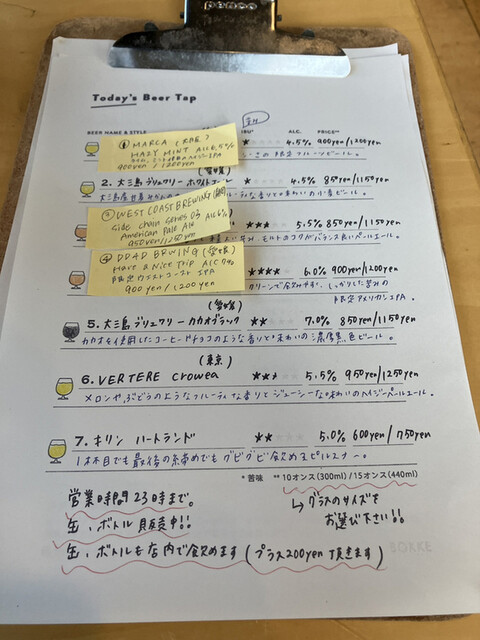 penco
Today's Beer Tap
BEER NAME & STYLE
ALC.
PRICE
① MARCA (大阪)
HAZY MINT ALC 4.5%
900yen/1200yen
4.5% 900yen/1200yen
限定フルーツビール。
(愛媛)
2. 大三島ブリュワリー ホワイトエール
4.5% 850yen/1150yen
味わいの小麦ビール。
③ WEST COAST BREWING
Side chain series 03
American Pale Ale
950yen/1250yen
5.5% 850yen/1150yen
モルトのコクがバランス良いペールエール。
④ DD4D BREWING (愛媛)
Have a Nice Trip ALC 7%
限定ウエストコースト IPA
900yen/1200yen
★★★★ 6.0% 900yen/1200yen
クリーンで飲みやすい、しっかりした苦みの
限定アメリカンIPA。
(愛媛)
5. 大三島ブリュワリー カカオブラック ★★ 7.0% 850yen/1150yen
カカオを使用したコーヒーやチョコのような香りと味わいの濃厚黒色ビール。
(東京)
6. VERTERE Crowea ★★★ 5.5% 950yen/1250yen
メロンやぶどうのようなフルーティな香りとジューシーな味わいのヘイジーペールエール。
7. キリン ハートランド ★★ 5.0% 600yen/750yen
1杯目でも最後の締めでもグビグビ飲めるピルスナー。
*苦味 **10オンス(300ml)/15オンス(440ml)
営業時間23時まで。
↳ グラスのサイズを
お選び下さい!!
缶、ボトル販売中!!
缶、ボトルも店内で飲めます (プラス200yen頂きます)